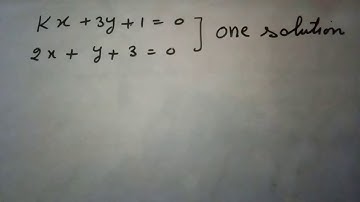 Kx + 3y + 1 = 0 ] one solution
2x + y + 3 = 0